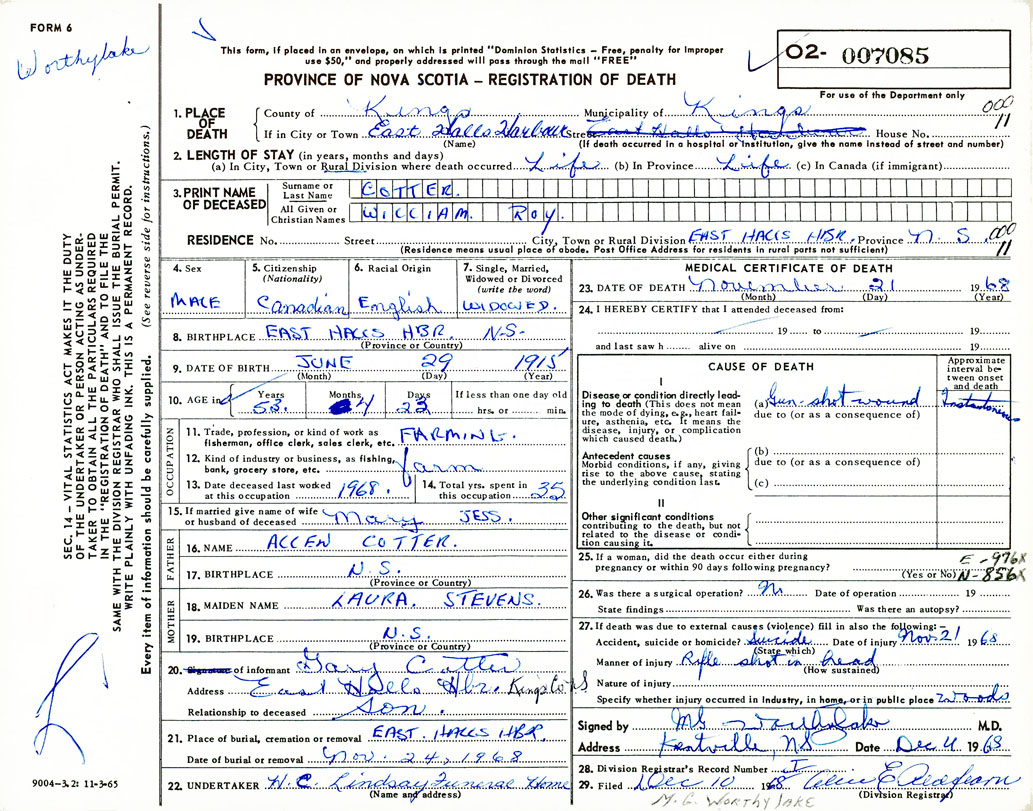 FORM 6
Worthylake
This form, if placed in an envelope, on which is printed "Dominion Statistics – Free, penalty for improper
use $50," and properly addressed will pass through the mail "FREE"
PROVINCE OF NOVA SCOTIA – REGISTRATION OF DEATH
O2- 007085
For use of the Department only
000
11
SEC. 14 – VITAL STATISTICS ACT MAKES IT THE DUTY
OF THE UNDERTAKER OR PERSON ACTING AS UNDER-
TAKER TO OBTAIN ALL THE PARTICULARS REQUIRED
IN THE "REGISTRATION OF DEATH" AND TO FILE THE
SAME WITH THE DIVISION REGISTRAR WHO SHALL ISSUE THE BURIAL PERMIT.
WRITE PLAINLY WITH UNFADING INK. THIS IS A PERMANENT RECORD.
Every item of information should be carefully supplied. (See reverse side for instructions.)
1. PLACE OF DEATH County of Kings Municipality of Kings
If in City or Town East Halls Harbour Street East Halls Harbour House No.
(Name) (If death occurred in a hospital or institution, give the name instead of street and number)
2. LENGTH OF STAY (in years, months and days)
(a) In City, Town or Rural Division where death occurred Life (b) In Province Life (c) In Canada (if immigrant)
3. PRINT NAME OF DECEASED Surname or Last Name COTTER.
All Given or Christian Names WILLIAM. ROY.
RESIDENCE No. Street City, Town or Rural Division EAST HALLS HBR. Province N.S. 000
11
(Residence means usual place of abode. Post Office Address for residents in rural parts not sufficient)
4. Sex MALE
5. Citizenship (Nationality) Canadian
6. Racial Origin English
7. Single, Married, Widowed or Divorced (write the word) WIDOWED.
8. BIRTHPLACE EAST HALLS HBR. N-S-
(Province or Country)
9. DATE OF BIRTH JUNE 29 1915
(Month) (Day) (Year)
10. AGE in Years 53. Months 4 Days 22 If less than one day old hrs. or min.
OCCUPATION
11. Trade, profession, or kind of work as fisherman, office clerk, sales clerk, etc. FARMING.
12. Kind of industry or business, as fishing, bank, grocery store, etc. farm
13. Date deceased last worked at this occupation 1968.
14. Total yrs. spent in this occupation 35
15. If married give name of wife or husband of deceased Mary JESS.
FATHER
16. NAME ALLEN COTTER.
17. BIRTHPLACE N.S.
(Province or Country)
MOTHER
18. MAIDEN NAME LAURA. STEVENS.
19. BIRTHPLACE N.S.
(Province or Country)
20. Signature of informant Gary Cotter
Address East Halls Hbr. Kings Co NS
Relationship to deceased Son.
21. Place of burial, cremation or removal EAST. HALLS HBR.
Date of burial or removal Nov. 24, 1968
22. UNDERTAKER H.C. Lindsay Funeral Home
(Name and address)
9004-3.2: 11-3-65
MEDICAL CERTIFICATE OF DEATH
23. DATE OF DEATH November 21 1968
(Month) (Day) (Year)
24. I HEREBY CERTIFY that I attended deceased from:
19 to 19
and last saw h alive on 19
CAUSE OF DEATH
Approximate interval be- tween onset and death
I
Disease or condition directly lead- ing to death (This does not mean the mode of dying, e.g., heart fail- ure, asthenia, etc. It means the disease, injury, or complication which caused death.)
(a) Gun-shot wound
due to (or as a consequence of)
Antecedent causes
Morbid conditions, if any, giving rise to the above cause, stating the underlying condition last.
(b)
due to (or as a consequence of)
(c)
II
Other significant conditions
contributing to the death, but not related to the disease or condi- tion causing it.
25. If a woman, did the death occur either during
pregnancy or within 90 days following pregnancy?
(Yes or No)
E-976X
N-856X
26. Was there a surgical operation? No Date of operation 19
State findings Was there an autopsy?
27. If death was due to external causes (violence) fill in also the following:–
Accident, suicide or homicide? Suicide Date of injury Nov. 21 1968
(State which)
Manner of injury Rifle shot in head
(How sustained)
Nature of injury
Specify whether injury occurred in industry, in home, or in public place Woods
Signed by MG Worthylake M.D.
Address Kentville, NS Date Dec 4 1968
28. Division Registrar's Record Number
29. Filed Dec 10 1968
(Division Registrar)
M.G. WORTHYLAKE